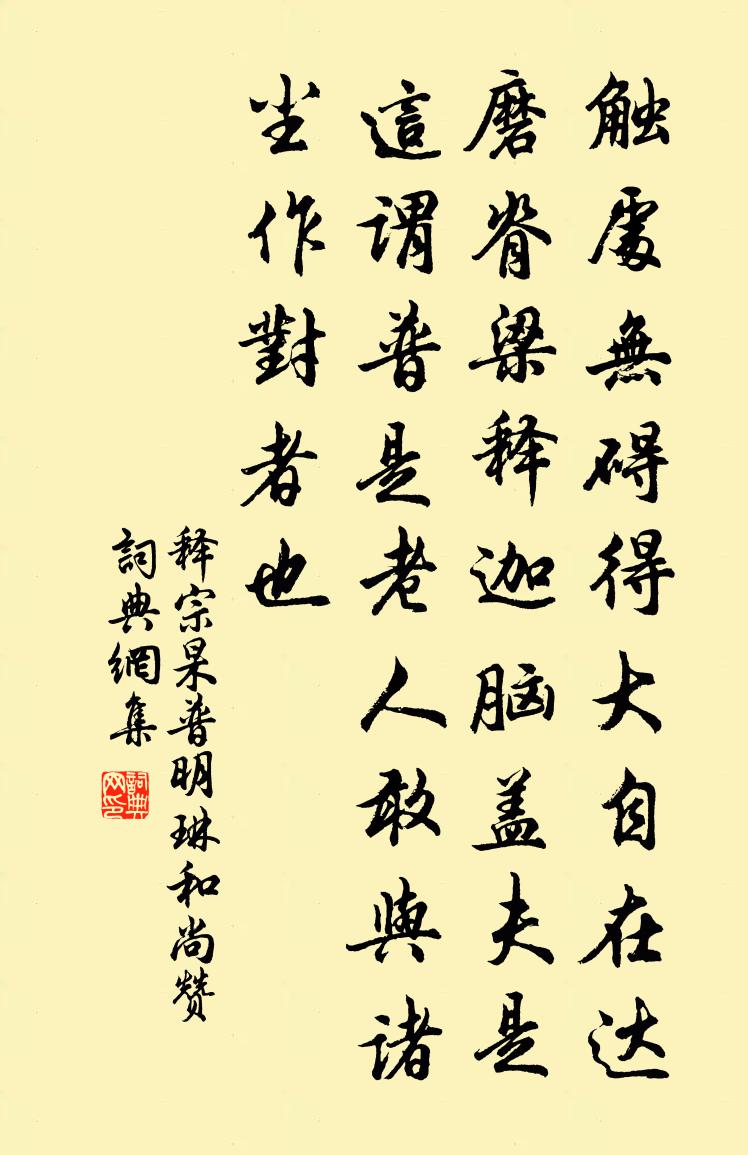 触處無碍得大自在达
磨脊梁释迦脑盖夫是
這谓普是老人敢與诸
尘作對者也
释宗杲普明琳和尚赞
詞典網集
詞典网印